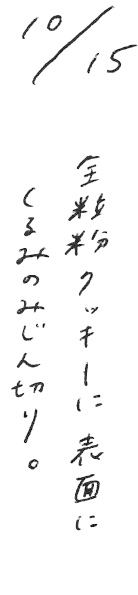 10/15
全粒粉クッキーに表面に
くるみのみじん切り。